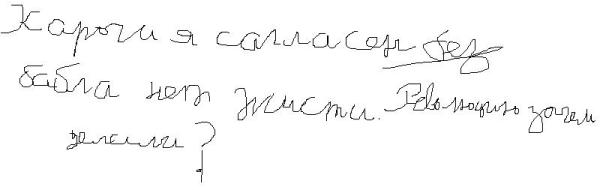 Карочи я сагласен без
бабла нет жисти. Революцию зачем
делали?